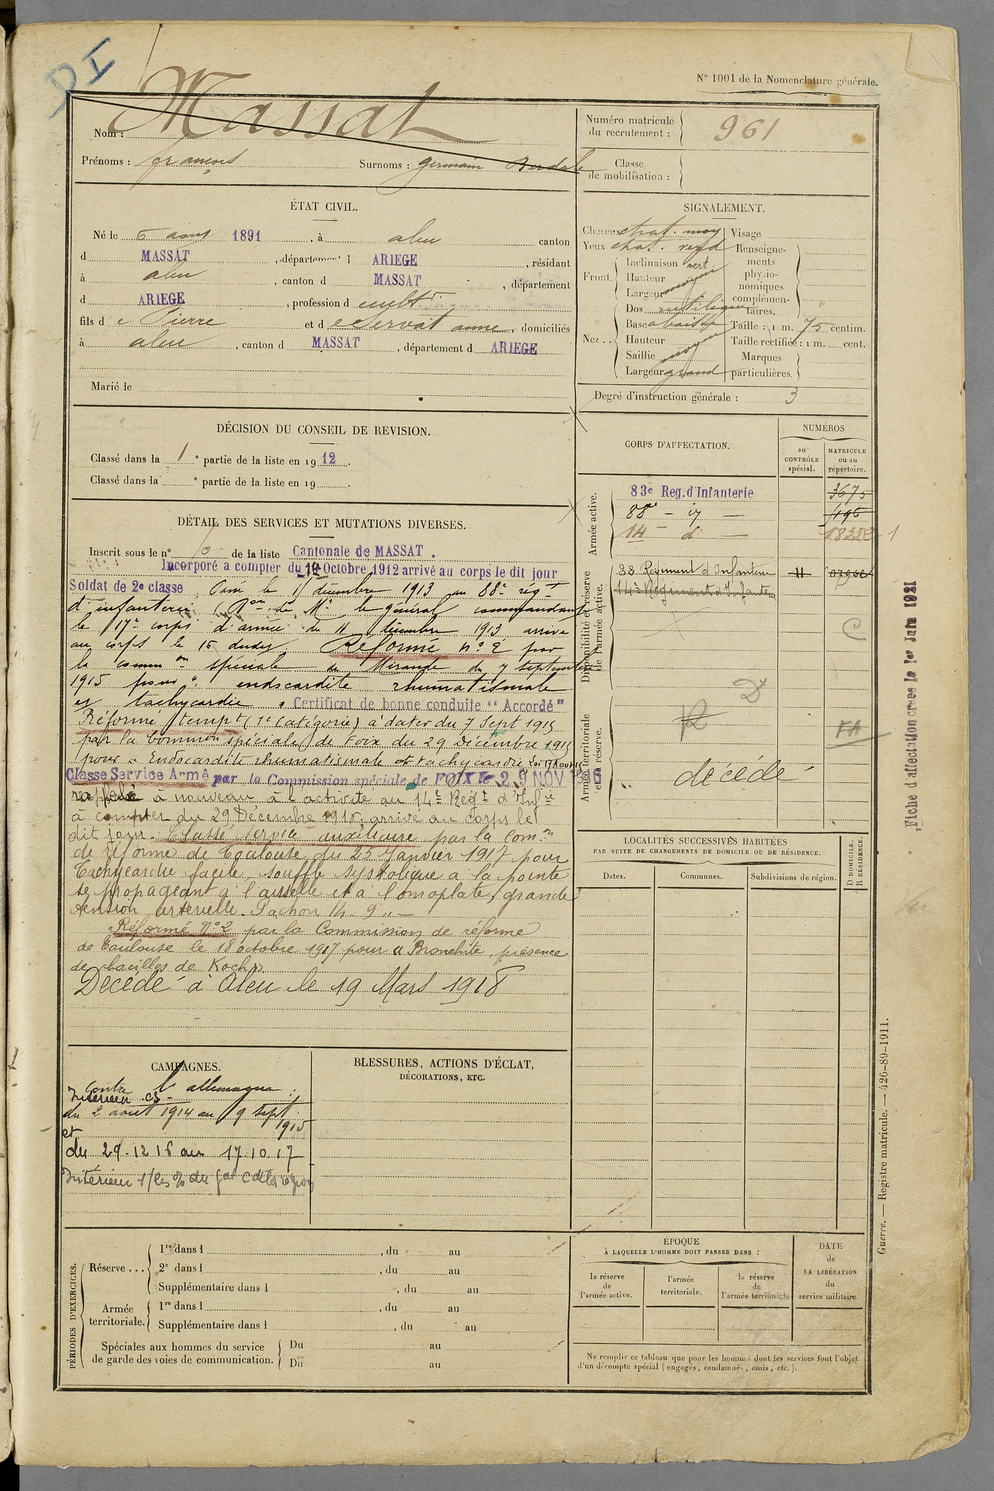 DI
N° 1001 de la Nomenclature générale.
Nom : Massat
Prénoms : françois Surnoms : germain
Numéro matricule du recrutement : 961
Classe de mobilisation :
ÉTAT CIVIL.
Né le 6 aout 1891, à aleu canton
d MASSAT, département d ARIEGE, résidant
à aleu, canton d MASSAT, département
d ARIEGE, profession d cultr
fils d e Pierre et d e Servat anne, domiciliés
à aleu, canton d MASSAT, département d ARIEGE
Marié le
SIGNALEMENT.
Cheveux chat. moy
Yeux chat. verd
Front. Inclinaison vert
Hauteur
Largeur moyen
Nez.. Dos rectiligne
Base abaissé
Hauteur
Saillie moyen
Largeur grand
Visage
Renseignements physionomiques complémentaires.
Taille : 1 m. 75 centim.
Taille rectifiée : 1 m. cent.
Marques particulières.
Degré d'instruction générale : 3
DÉCISION DU CONSEIL DE REVISION.
Classé dans la 1 e partie de la liste en 1912.
Classé dans la e partie de la liste en 19 .
CORPS D'AFFECTATION.
NUMÉROS
au CONTRÔLE spécial.
MATRICULE ou au répertoire.
Armée active.
83e Reg. d'Infanterie 3675
88e - id -
14 - d -
Disponibilité et réserve de l'armée active.
83 Régiment d'Infanterie
14e Régiment d'Infanterie
C
Armée territoriale et sa réserve.
D
R
FA
décédé
DÉTAIL DES SERVICES ET MUTATIONS DIVERSES.
Inscrit sous le n° de la liste Cantonale de MASSAT.
Incorporé a compter du 10 Octobre 1912 arrivé au corps le dit jour
Soldat de 2e classe, Passé le 15 décembre 1913 au 88e régt
d'infanterie (Don de Mr le général commandant
le 17e corps d'armée du 11 décembre 1913 arrivé
au corps le 15 dudit. Réformé n° 2 par
la Common spéciale de Mirande du 7 septembre
1915 pour " endocardite rhumatismale
et tachycardie " Certificat de bonne conduite "Accordé"
Réformé tempt (1e Catégorie) à dater du 7 Sept 1915
par la Common spéciale de Foix du 29 Décembre 1915
pour " Endocardite rhumatismale et tachycardie Loi 17 Aout 15
Classé Service Armé par la Commission spéciale de FOIX le 29 NOV
rappelé à nouveau à l'activité au 14e Regt d'Infie
à compter du 29 Décembre 1916, arrivé au corps le
dit jour. Classé service auxiliaire par la Comon
de réforme de Toulouse du 25 Janvier 1917 pour
Tachycardie facile, souffle systolique à la pointe
se propageant à l'aisselle et à l'omoplate, grande
tension artérielle. Pachon 14-9 "-
Réformé N° 2 par la Commission de réforme
de Toulouse le 18 octobre 1917 pour " Bronchite, présence
de bacilles de Koch "
Décédé à Aleu le 19 Mars 1918
LOCALITÉS SUCCESSIVES HABITÉES
PAR SUITE DE CHANGEMENTS DE DOMICILE OU DE RÉSIDENCE.
Dates.
Communes.
Subdivisions de région.
D DOMICILE.
R RÉSIDENCE.
CAMPAGNES.
contre l'allemagne
Intérieur CS
du 2 aout 1914 au 9 sept. 1915
et
du 29.12.16 au 17.10.17
BLESSURES, ACTIONS D'ÉCLAT,
DÉCORATIONS, ETC.
PÉRIODES D'EXERCICES.
Réserve ... 1re dans l , du au
2e dans l , du au
Supplémentaire dans l , du au
Armée territoriale. 1re dans l , du au
Supplémentaire dans l , du au
Spéciales aux hommes du service de garde des voies de communication. Du au
Du au
ÉPOQUE
À LAQUELLE L'HOMME DOIT PASSER DANS :
la réserve de l'armée active.
l'armée territoriale.
la réserve de l'armée territoriale
DATE de LA LIBÉRATION du service militaire.
Ne remplir ce tableau que pour les hommes dont les services font l'objet
d'un décompte spécial (engagés, condamnés, omis, etc.).
Fiche d'affectation créée le 1er Juin 1921
Guerre. — Registre matricule. — 426-89-1911.